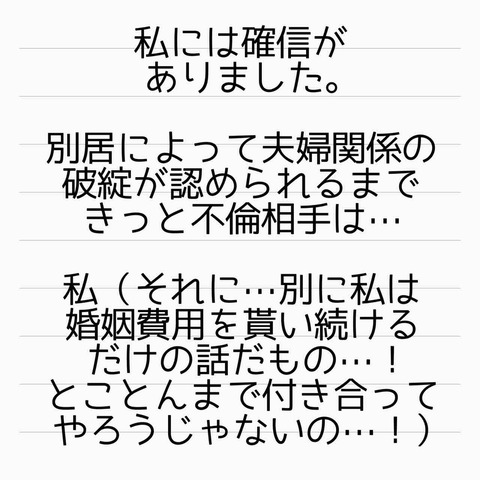 私には確信が
ありました。
別居によって夫婦関係の
破綻が認められるまで
きっと不倫相手は…
私（それに…別に私は
婚姻費用を貰い続ける
だけの話だもの…！
とことんまで付き合って
やろうじゃないの…！）